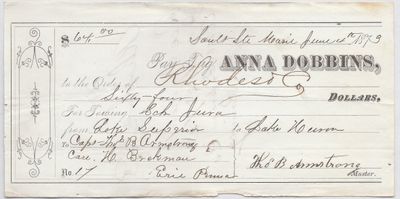 $64.00 Sault Ste Marie June 1873
Pay Tug ANNA DOBBINS,
to the Order of Rhodes & Co
Sixty four DOLLARS,
For Towing Sch Jura
from Lake Superior to Lake Huron
To Capt Thos B Armstrong
Care H. Beckman Thos B Armstrong
No. 17 Erie Penna Master.